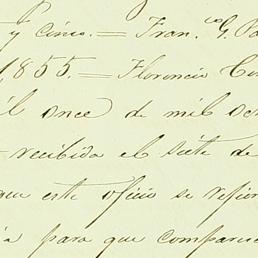 y cinco. = Fran.co G. Pa
1,855. = Florencio
il once de mil oc
recibida el siete de
que este oficio se refier
ia para que comparec